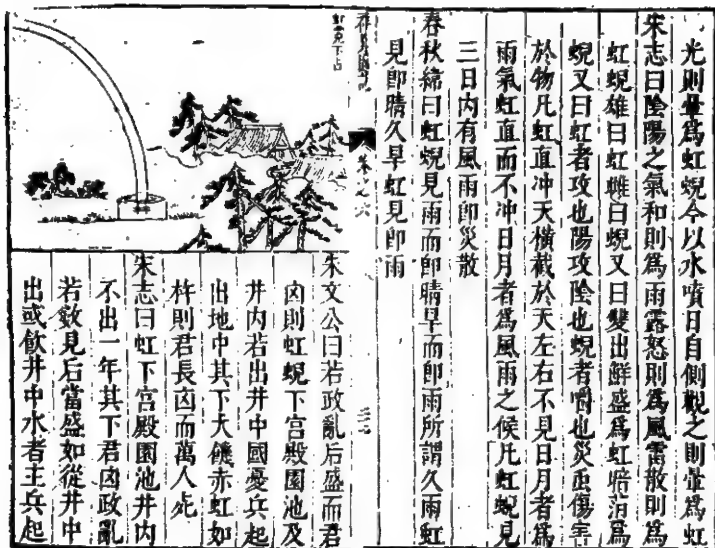 光則暈爲虹蜺今以水噴日自側觀之則暈爲虹
宋志曰陰陽之氣和則爲雨露怒則爲風雷散則爲
虹蜺雄曰虹雌曰蜺又曰雙出鮮盛爲虹暗
蜺又曰虹者攻也陽攻陰也蜺者嚙也災傷害
於物凡虹直冲天橫截於天左右不見日月者爲
雨氣虹直而不冲日月者爲風雨之候凡虹蜺見
三日內有風雨卽災散
春秋緯曰虹蜺見雨而卽晴旱而卽雨所謂久雨虹
見卽晴久旱虹見卽雨
卷之六
虹霓下占
朱文公曰若政亂后盛而君
凶則虹蜺下宮殿園池及
井內若出井中國憂兵起
出地中其下大饑赤虹如
杵則君長凶而萬人死
宋志曰虹下宮殿園池井內
不出一年其下君凶政亂
若數見后當盛如從井中
出或飲井中水者主兵起